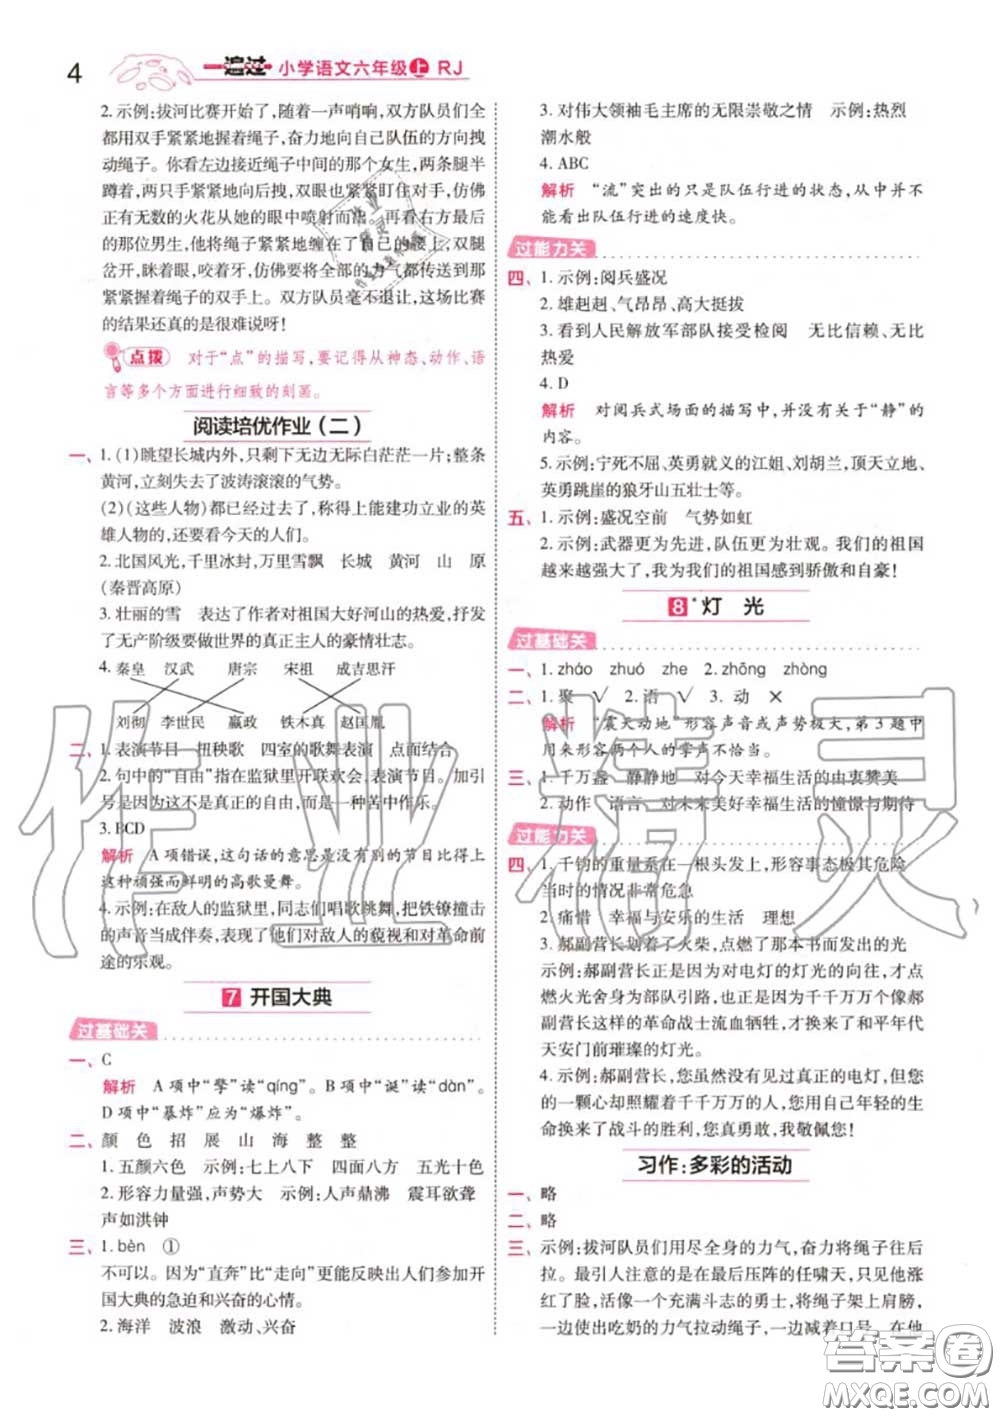 4
一遍过 小学语文六年级上 RJ
2. 示例:拔河比赛开始了,随着一声哨响,双方队员们全
都用双手紧紧地握着绳子,奋力地向自己队伍的方向拽
动绳子。你看左边接近绳子中间的那个女生,两条腿半
蹲着,两只手紧紧地向后拽,双眼也紧紧盯住对手,仿佛
正有无数的火花从她的眼中喷射而出。再看右方最后
的那位男生,他将绳子紧紧地缠在了自己的腰上,双腿
岔开,眯着眼,咬着牙,仿佛要将全部的力气都传送到那
紧紧握着绳子的双手上。双方队员毫不退让,这场比赛
的结果还真的是很难说呀!
点拨 对于“点”的描写,要记得从神态、动作、语
言等多个方面进行细致的刻画。
阅读培优作业(二)
一、1. (1)眺望长城内外,只剩下无边无际白茫茫一片;整条
黄河,立刻失去了波涛滚滚的气势。
(2)(这些人物)都已经过去了,称得上能建功立业的英
雄人物的,还要看今天的人们。
2. 北国风光,千里冰封,万里雪飘 长城 黄河 山 原
(秦晋高原)
3. 壮丽的雪 表达了作者对祖国大好河山的热爱,抒发
了无产阶级要做世界的真正主人的豪情壮志。
4. 秦皇 汉武 唐宗 宋祖 成吉思汗
刘彻 李世民 嬴政 铁木真 赵匡胤
二、1. 表演节目 扭秧歌 四室的歌舞表演 点面结合
2. 句中的“自由”指在监狱里开联欢会、表演节目。加引
号是因为这不是真正的自由,而是一种苦中作乐。
3. BCD
解析 A项错误,这句话的意思是没有别的节目比得上
这种顽强而鲜明的高歌曼舞。
4. 示例:在敌人的监狱里,同志们唱歌跳舞,把铁镣撞击
的声音当成伴奏,表现了他们对敌人的藐视和对革命前
途的乐观。
7 开国大典
过基础关
一、C
解析 A项中“擎”读“qíng”。B项中“诞”读“dàn”。
D项中“暴炸”应为“爆炸”。
二、颜 色 招 展 山 海 整 整
1. 五颜六色 示例:七上八下 四面八方 五光十色
2. 形容力量强,声势大 示例:人声鼎沸 震耳欲聋
声如洪钟
三、1. bèn ①
不可以。因为“直奔”比“走向”更能反映出人们参加开
国大典的急迫和兴奋的心情。
2. 海洋 波浪 激动、兴奋
3. 对伟大领袖毛主席的无限崇敬之情 示例:热烈
潮水般
4. ABC
解析 “流”突出的只是队伍行进的状态,从中并不
能看出队伍行进的速度快。
过能力关
四、1. 示例:阅兵盛况
2. 雄赳赳、气昂昂、高大挺拔
3. 看到人民解放军部队接受检阅 无比信赖、无比
热爱
4. D
解析 对阅兵式场面的描写中,并没有关于“静”的
内容。
5. 示例:宁死不屈、英勇就义的江姐、刘胡兰,顶天立地、
英勇跳崖的狼牙山五壮士等。
五、1. 示例:盛况空前 气势如虹
2. 示例:武器更为先进,队伍更为壮观。我们的祖国
越来越强大了,我为我们的祖国感到骄傲和自豪!
8* 灯 光
过基础关
一、1. zháo zhuó zhe 2. zhōng zhòng
二、1. 聚 √ 2. 语 √ 3. 动 ×
解析 “震天动地”形容声音或声势极大,第3题中
用来形容两个人的掌声不恰当。
三、1. 千万盏 静静地 对今天幸福生活的由衷赞美
2. 动作 语言 对未来美好幸福生活的憧憬与期待
过能力关
四、1. 千钧的重量系在一根头发上,形容事态极其危险
当时的情况非常危急
2. 痛惜 幸福与安乐的生活 理想
3. 郝副营长划着了火柴,点燃了那本书而发出的光
示例:郝副营长正是因为对电灯的灯光的向往,才点
燃火光舍身为部队引路,也正因为千千万万个像郝
副营长这样的革命战士流血牺牲,才有和平年代
天安门前璀璨的灯光。
4. 示例:郝副营长,您虽然没有见过真正的电灯,但您
的一颗心却照耀着千千万万的人,您用自己年轻的生
命换来了战斗的胜利,您真勇敢,我敬佩您!
习作:多彩的活动
一、略
二、略
三、示例:拔河队员们用尽全身的力气,奋力将绳子往后
拉。最引人注意的是在最后压阵的任啸天,只见他涨
红了脸,活像一个充满斗志的勇士,将绳子架上肩膀,
一边使出吃奶的力气拉动绳子,一边减着口号,在他
作业精灵
答案圈
MXQE.COM